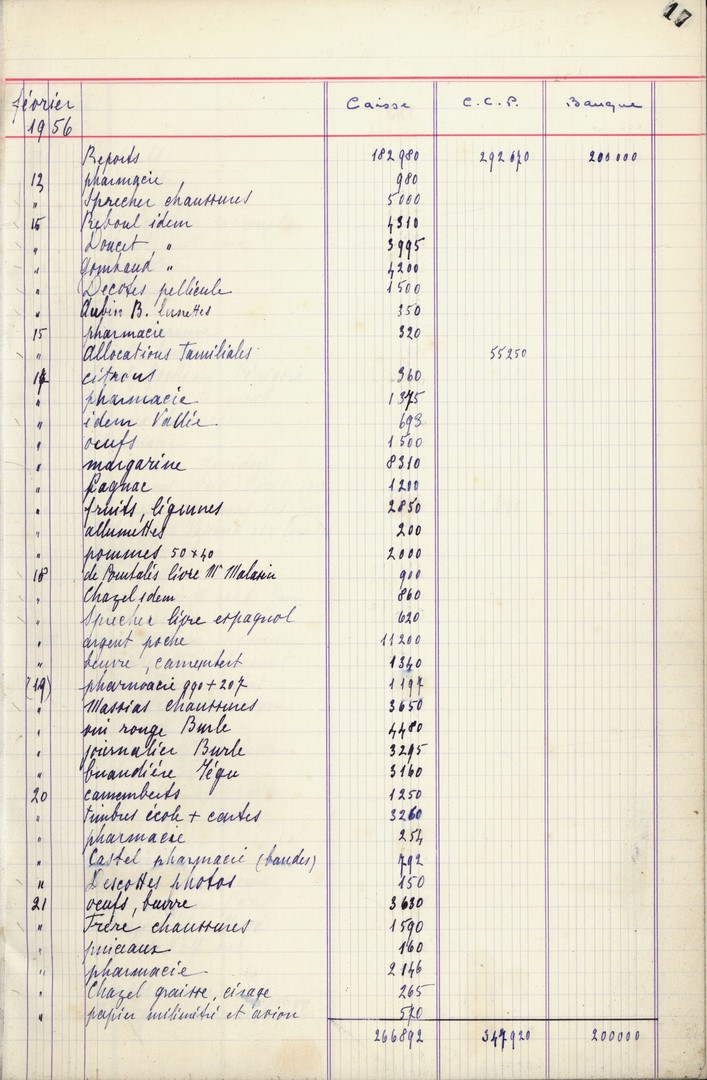 17
février Caisse C.C.P. Banque
1956
Reports 182980 292670 200000
13 pharmacie 980
" Sprecher chaussures 5000
15 Reboul idem 4310
" Doucet " 3995
" Gombaud " 4200
" Decotes pellicule 1500
" Aubin B. lunettes 350
15 pharmacie 320
" Allocations familiales 55250
17 citrons 360
" pharmacie 1375
" idem Vallée 693
" oeufs 1500
" margarine 8310
" Pagnac 1200
" fruits, légumes 2850
" allumettes 200
" pommes 50 x 40 2000
18 de Pourtalés livre Mr Malasin 900
" Chazel idem 860
" Sprecher livre espagnol 620
" argent poche 11200
" beurre, camembert 1340
(19) pharmacie 990 + 207 1197
" Massias chaussures 3650
" vin rouge Burle 4480
" journalier Burle 3295
" buandière Ségu 3160
20 camemberts 1250
" timbres école + cartes 3260
" pharmacie 254
" Castel pharmacie (bandes) 792
" Descottes photos 150
21 oeufs, beurre 3630
" Frère chaussures 1590
" pinceaux 160
" pharmacie 2146
" Chazel graisse, cirage 265
" papier milimétré et avion 570
266892 347920 200000